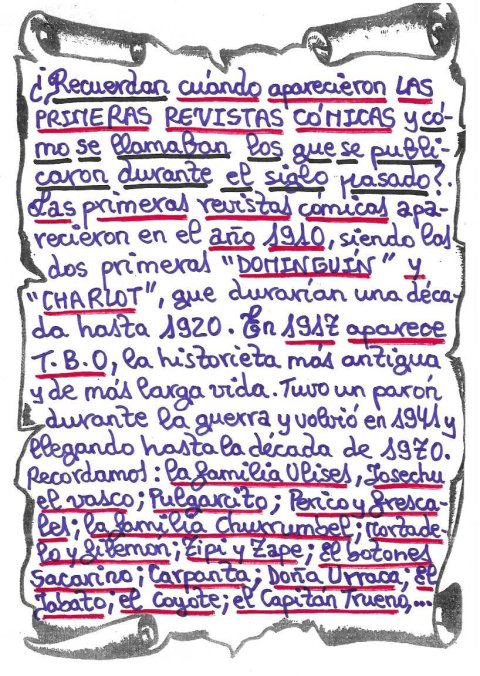 ¿Recuerdan cuándo aparecieron LAS
PRIMERAS REVISTAS CÓMICAS y có-
mo se llamaban los que se publi-
caron durante el siglo pasado?.
Las primeras revistas cómicas apa-
recieron en el año 1910, siendo las
dos primeras "DOMINGUÍN" y
"CHARLOT", que durarían una déca-
da hasta 1920. En 1917 aparece
T.B.O, la historieta más antigua
y de más larga vida. Tuvo un parón
durante la guerra y volvió en 1941 y
llegando hasta la década de 1970.
Recordamos: la familia Ulises, Josechu
el vasco; Pulgarcito; Perico y Fresca-
les; la familia Churrumbel; Mortade-
lo y Filemón; Zipi y Zape; el botones
Sacarino; Carpanta, Doña Urraca; El
Jabato; el Coyote; el Capitán Trueno,...